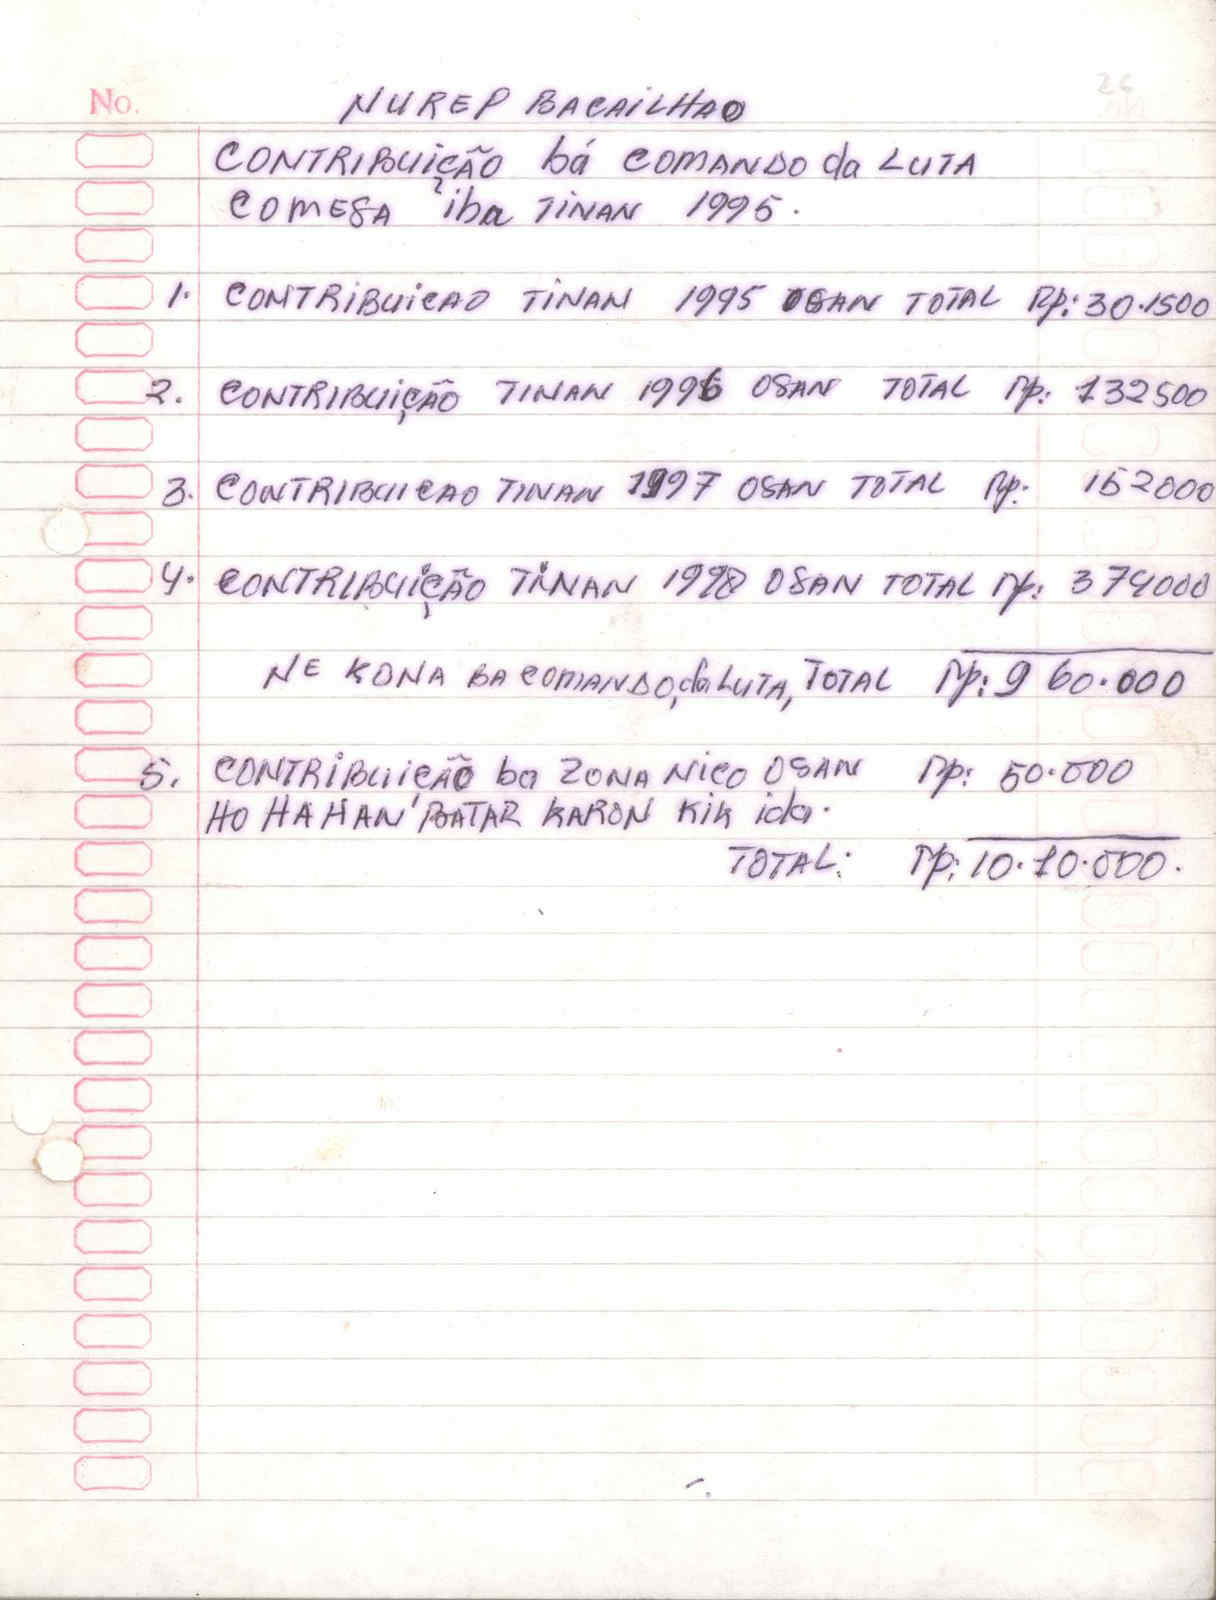 26
No. NUREP BACAILHAO
CONTRIBUIÇÃO bá COMANDO da LUTA
COMESA iba TINAN 1995.
1. CONTRIBUICAO TINAN 1995 OSAN TOTAL Rp: 30.1500
2. CONTRIBUIÇÃO TINAN 1996 OSAN TOTAL Rp: 132500
3. CONTRIBUICAO TINAN 1997 OSAN TOTAL Rp: 152000
4. CONTRIBUIÇÃO TINAN 1998 OSAN TOTAL Rp: 374000
NE KONA BA COMANDO, da LUTA, TOTAL Rp: 9 60.000
5. CONTRIBUIÇÃO ba ZONA NICO OSAN Rp: 50.000
HO HAHAN BATAR KARON KIK ida.
TOTAL: Rp: 10.10.000.